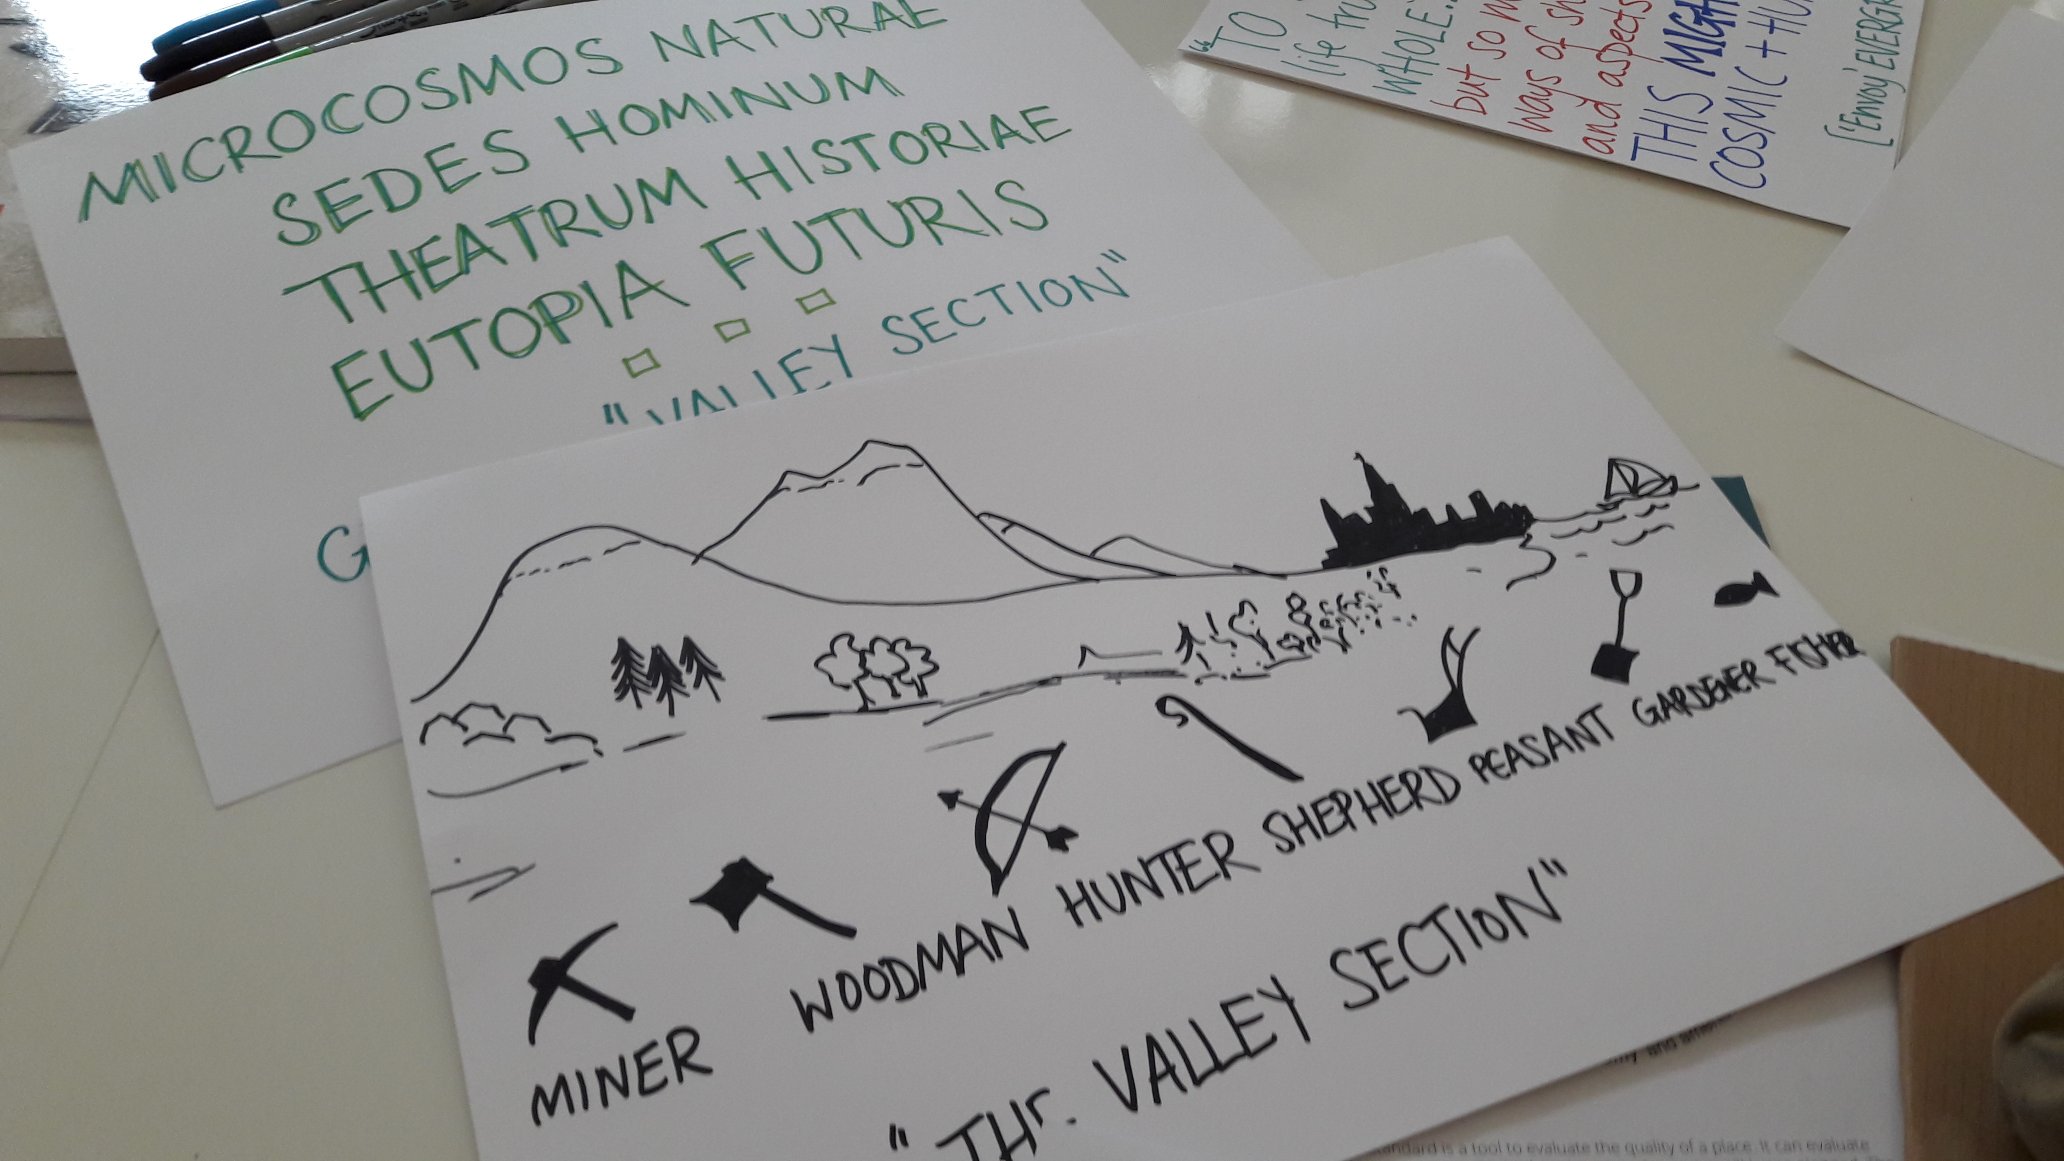 MICROCOSMOS NATURAE
SEDES HOMINUM
THEATRUM HISTORIAE
EUTOPIA FUTURIS
"VALLEY SECTION"
G
"TO
life
WHOLE
but so
ways of
and aspects
THIS MIGH
COSMIC + HU
['Envoy' EVERGR
MINER WOODMAN HUNTER SHEPHERD PEASANT GARDENER FISHER
"THr. VALLEY SECTION"
and
is a tool to evaluate the quality of a place. It can evaluate